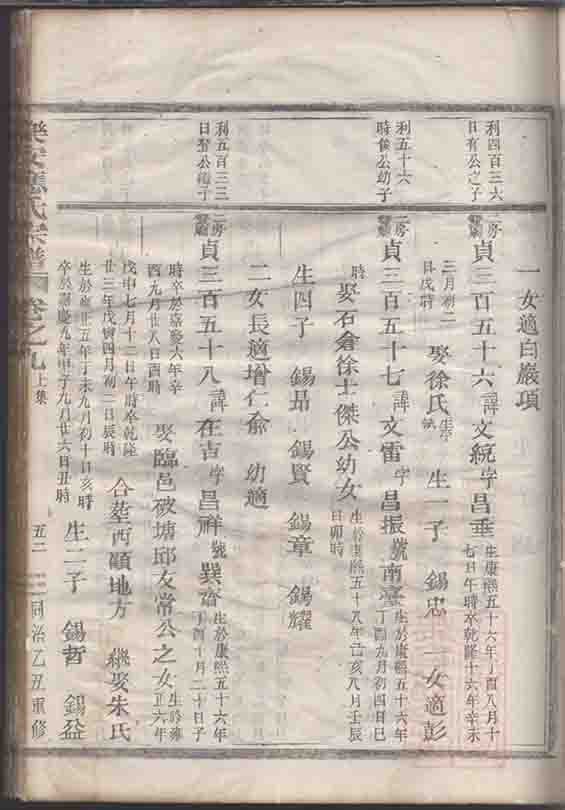 一女適白巖項
利四百三六
日有公之子
二房
貞三百五十六諱文統字昌垂
生康熙五十六年丁酉八月十
七日午時卒乾隆十六年辛未
三月初二
日戌時
娶徐氏
生一子 錫忠 一女適彭
利五十六
時俟公幼子
二房
貞三百五十七諱文雷字昌振號南臺
生於康熙五十六年
丁酉九月初四日巳
時
娶石倉徐士傑公幼女
生於康熙五十八年己亥八月壬辰
日卯時
生四子 錫昂 錫賢 錫章 錫耀
二女長適增仁俞 幼適
利五百三三
日公子
二房
貞三百五十八諱在吉字昌祥號巽齋
生於康熙五十六年
丁酉十月二十日子
時卒於嘉慶六年辛
酉九月廿八日酉時
娶臨邑破塘邱友常公之女
生於雍
正六年
戊申七月十二日午時卒乾隆
廿三年戊寅四月初二日辰時
合葬西頭地方 繼娶朱氏
生於雍正五年丁未九月初十日亥時
卒於嘉慶九年甲子九月廿六日丑時
生二子 錫哲 錫益
樂安應氏宗譜 卷之九 上集 五二 同治乙丑重修